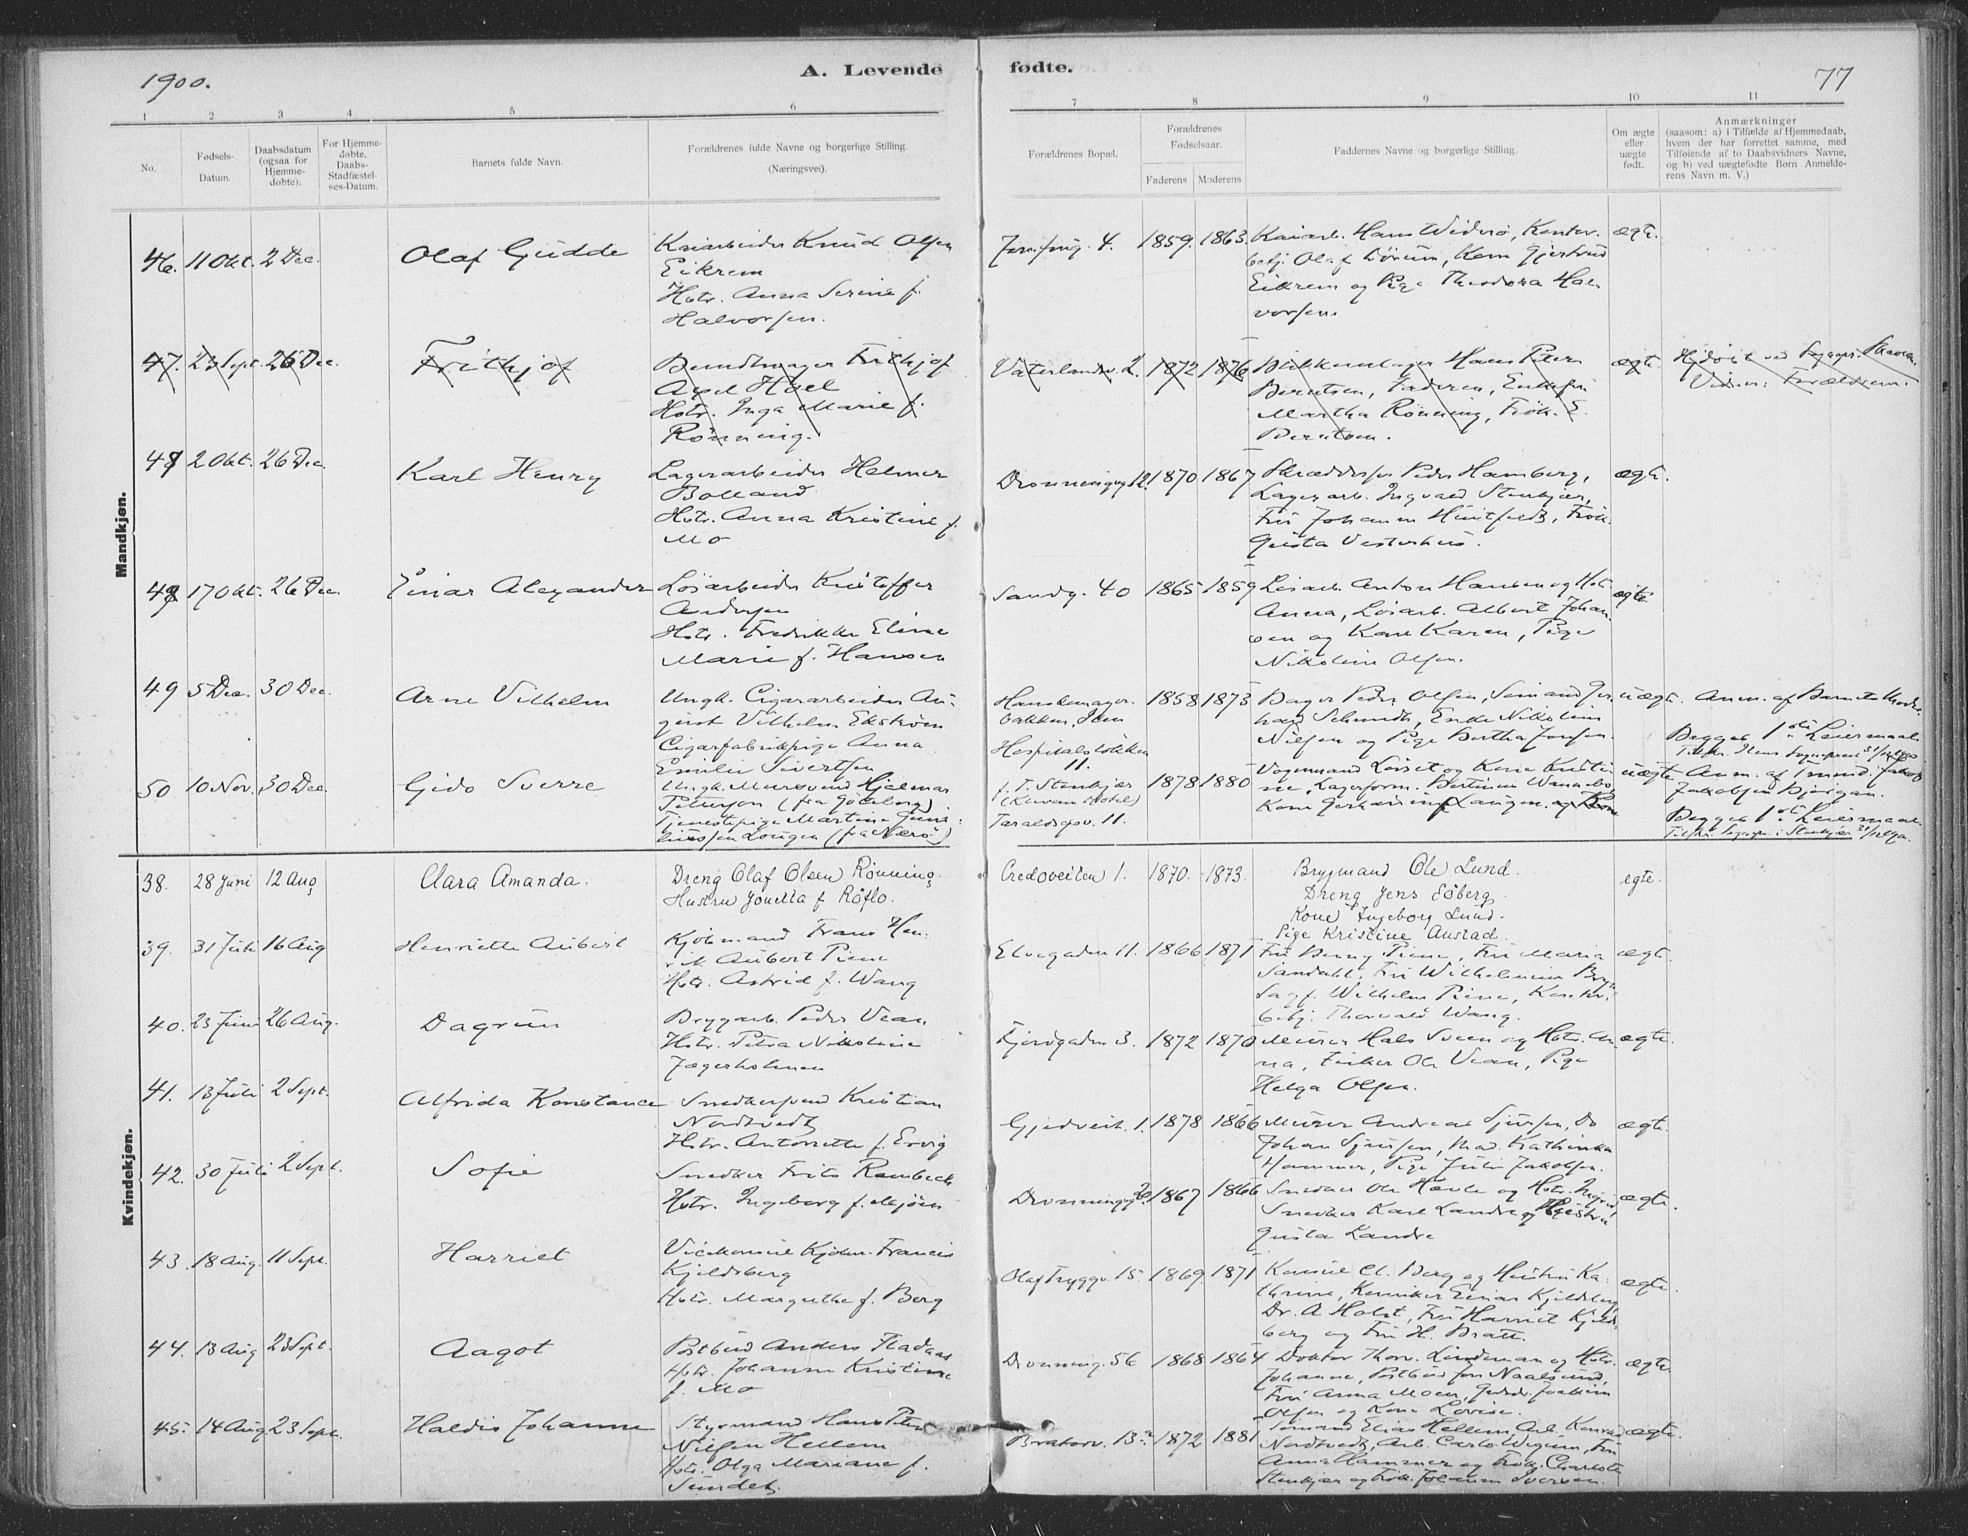 1900.
A. Levende fødte.
77
1 2 3 4 5 6 7 8 9 10 11
No.
Fødsels-Datum.
Daabsdatum (ogsaa for Hjemme-døbte).
For Hjemme-døbte, Daabs-Stadfæstel-ses-Datum.
Barnets fulde Navn.
Forældrenes fulde Navne og borgerlige Stilling.
(Næringsvei).
Forældrenes Bopæl.
Forældrenes Fødselsaar.
Faderens Moderens
Faddernes Navne og borgerlige Stilling.
Om ægte eller uægte født.
Anmærkninger
(saasom: a) i Tilfælde af Hjemmedaab,
hvem der har forrettet samme, med
Tilføiende af to Daabsvidners Navne,
og b) ved uægtefødte Børn Anmelde-
rens Navn m. V.)
Mandkjøn.
46. 11 Okt. 2 Dec. Olaf Gudde
Kaiarbeider Knud Olsen
Eikrem
Hstr. Anna Serine f.
Halvorsen.
4. 1859. 1863.
Kaiarb. Hans Widerø, Kontor-
betj. Olaf Lørum, Kone Gjertrud
Eikrem og Pige Theodora Hal-
vorsen.
ægte.
47. 23 Sept. 26 Dec. Frithjof
Bundtmager Frithjof
Axel Hoel
Hstr. Inga Marie f.
Rønning.
Vaterlandsv. 2. 1872 1876
Blikkenslager Hans Peter
Berntsen, Faderen, Enkefru
Martha Rønning, Frøk. E.
Berntsen.
ægte.
Hjdøbt ved
Vidner: Forældrene.
48 2 Okt. 26 Dec. Karl Henry
Lagerarbeider Helmer
Bolland
Hstr. Anna Kristine f.
Mo
Dronningensg 12. 1870 1867
Skræddersv. Peder Hamberg,
Lagerarb. Ingvald Stenkjær,
Fru Johanna Huitfeldt, Frøk.
Gusta Vesterhus.
ægte.
48 17 Okt. 26 Dec. Einar Alexander
Løsarbeider Kristoffer
Andersen
Hstr. Fredrikke Eline
Marie f. Hansen
Sandg. 40 1865 1859
Løsarb. Anton Hansen og Hstr.
Anna, Løsarb. Albert Johan-
sen og Kone Karen, Pige
Nikoline Olsen.
ægte.
49 5 Dec. 30 Dec. Arne Vilhelm
Ungk. Cigararbeider Au-
gust Vilhelm Ekstrøm
Cigarfabrikpige Anna
Emilie Sivertsen
Hanskemager-
bakken,
Hospitalsløkken
11.
1858 1873
Bager Peder Olsen, Sømand Ger-
hard Schmidt, Enke Nikoline
Nilsen og Pige Bertha Jensen.
uægte.
Anm. af Barnets Moder.
Begges 1ste Leiermaal
50 10 Nov. 30 Dec. Gido Sverre
Ungk. Murersvend Hjalmar
Petterson (fra Gøteborg)
Tjenestepige Martine Gune-
liussen Lougen (fra Nærø)
p. T. Stenkjær
Taraldsgv. 11.
1878 1880
Vognmand Løiset og Kone Kristi-
ne, Lagerform. Bertinus Wannebo,
uægte
Anm. af
Jakobsen
Begges 1ste Leiermaal
Kvindekjøn.
38. 28 Juni 12 Aug Clara Amanda.
Dreng Olaf Olsen Rønning.
Hustru Jonetta f Røflo.
Credoveiten 1. 1870. 1873.
Brygmand Ole Lund.
Dreng Jens Søberg
Kone Ingeborg Lund.
Pige Kristine Austad.
egte.
39. 31 Juli 16 Aug Henriette Aubert
Kjøbmand Frans Hen-
rik Aubert Piene
Hstr. Astrid f. Wang
Elvegaden 11. 1866 1871
Fru Benny Piene, Fru Maria
Sandahl, Fru Wilhelmine
Sagf. Wilhelm Piene, Kontor-
betj. Thorvald Wang.
ægte.
40. 23 Juni 26 Aug. Dagrun
Brygarb. Peder Vean
Hstr. Petra Nikoline
Jægerholmen
Fjordgaden 3. 1872 1870
Murer Hals Sveen og Hstr. An-
na, Ole Vean, Pige
Helga Olsen.
ægte.
41. 13 Juli 2 Sept. Alfrida Konstance
Snedkersvend Kristian
Nordtvedt
Hstr. Antonette f. Ervig
Gjedveit. 1. 1878 1866
Murer Andreas Sjursen, Do
Johan Sjursen, Mad. Kathinka
Hammer, Pige Julie Jakobsen.
ægte.
42. 30 Juli 2 Sept. Sofie
Snedker Frits Rambech
Hstr. Ingeborg f. Mjøen
Dronningensg 1867 1866
Snedker Ole Havle og Hstr.
Snedker Karl Landre og Hustru
Gusta Landre
ægte.
43. 18 Aug. 11 Sept. Harriet
Vicekonsul Kjøbm. Francis
Kjeldsberg
Hstr. Margrethe f. Berg
Olaf Tryggv. 15. 1869 1871
Konsul Cl. Berg og Hustru Ka-
thrine, Kemiker Einar Kjeldsberg,
Dr. A Holst, Fru Harriet Kjelds-
berg og Fru H. Bratt.
ægte.
44. 13 Aug 23 Sept. Aagot
Postbud Anders Fladaas
Hstr. Johanna Kristine
f. Mo
Dronning. 56 1868 1864
Doktor Thorv. Lindeman og Hstr.
Johanne, Postbud Jon Naalsund,
Fru Anna Moen, Joakim
Olsen og Kone Lovise.
ægte.
45. 14 Aug 23 Sept. Haldis Johanne
Styrmand Hans Peter
Nilsen Hellem
Hstr. Olga Mariane f.
Sundet.
Bratørv. 13a 1872 1881
Sømand Elias Hellem, Arb. Konrad
Nordtvedt, Arb. Carlo Wigum, Fru
Anna Hammer og Frøk. Charlotte
Stenkjær og Frøk. Johanne Iversen.
ægte.